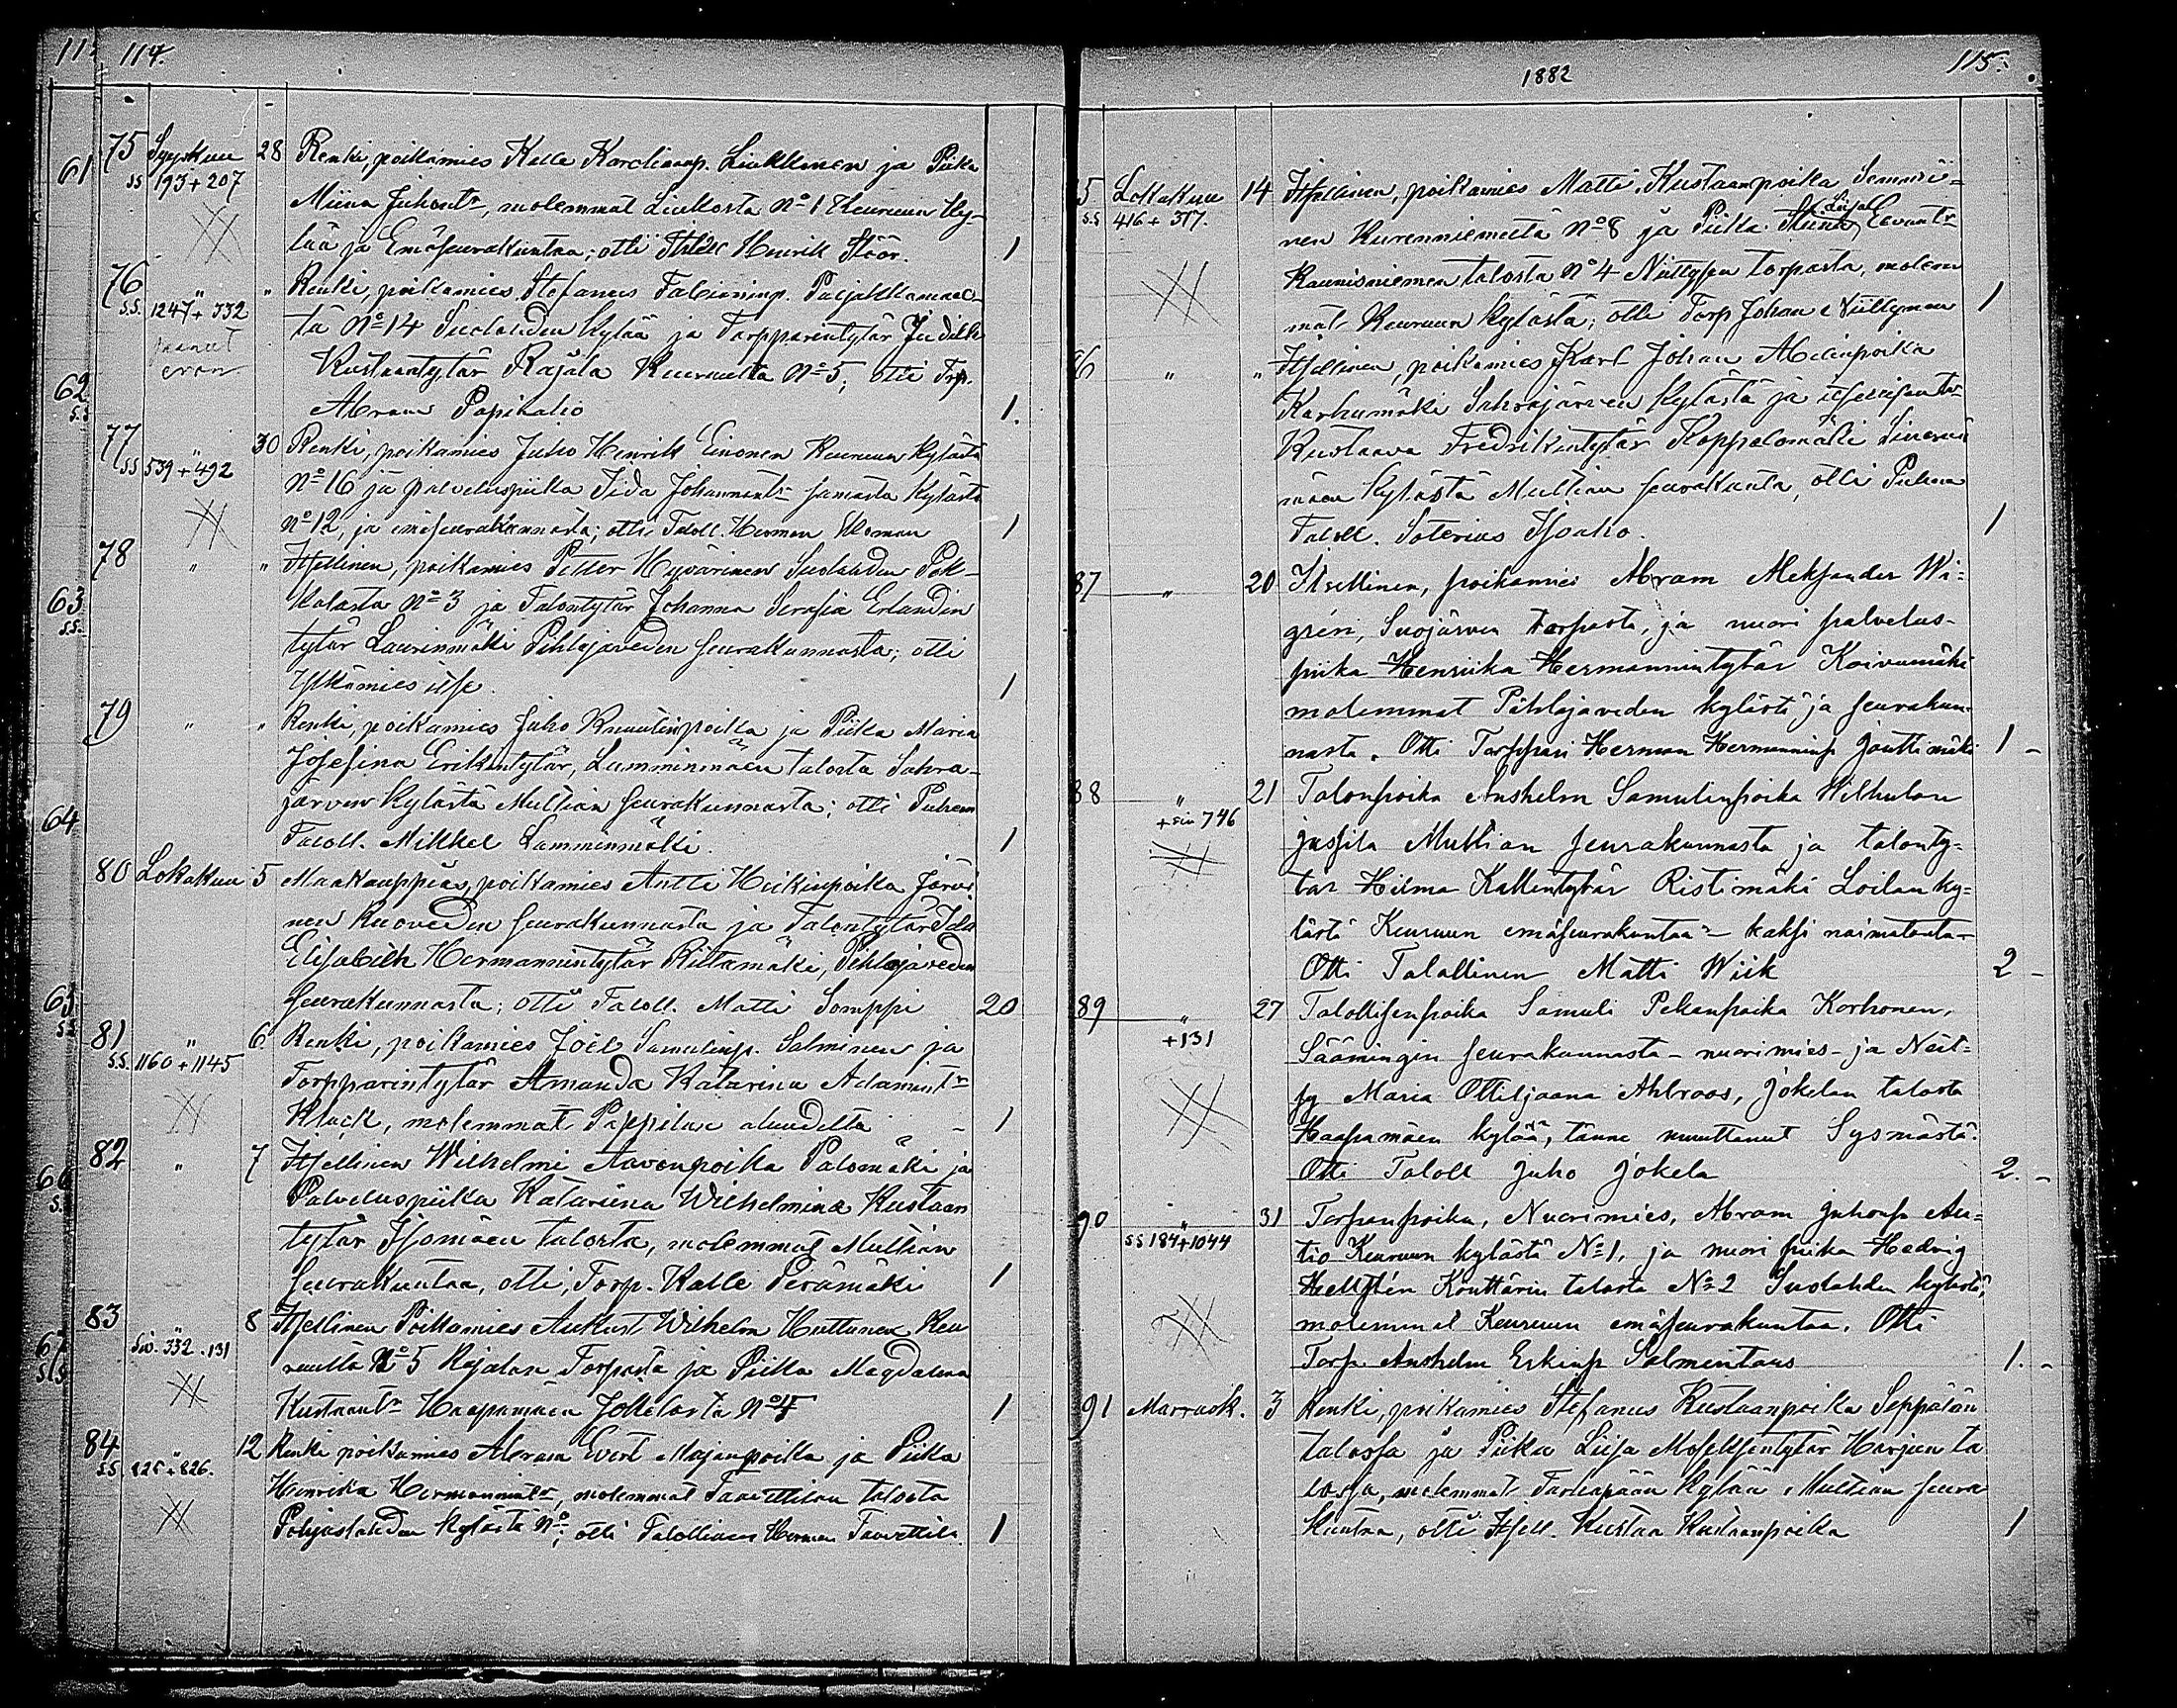 114.
75 Syyskuu 28 Renki, poikamies Kalle Karclinanp. Liukkonen ja Piika
ss 193+207
Miina Juhont:r, molemmat Liukosta N:o 1 Keuruun Ky-
lää ja Emäseurakuntaa; otti Henrik Höör. 1
76 " " Renki, poikamies Stefanus Fabianinp. Pasjakkamaas-
s.s. 1247+332
tä N:o 14 Suolahden Kylää ja Torpparintytär Judith
Kustaantytär Rajala Keuruulta N:o 5; Otti Trp.
Abram Papinalio 1.
77 " 30 Renki, poikamies Juho Henrik Einonen Keuruun Kylästä
ss 539+492
N:o 16 ja palveluspiika Iida Johannant:r samasta Kylästä
N:o 12, ja emäseurakunnasta; otti Taloll. Herman Woman 1
78 " " Itsellinen, poikamies Petter Hyvärinen Suolahden Pok-
kalasta N:o 3 ja Talontytär Johanna Serafia Erlandin
tytär Laurinmäki Pihlajaveden seurakunnasta; otti
Ylkämies itse. 1
79 " " Renki, poikamies Juho Ruuvlinpoika ja Piika Maria
Josefina Erikintytär, Lamminmäen talosta Sahra-
järven Kylästä Multian seurakunnasta; otti Puhem
Taloll. Mikkel Lamminmäki. 1
80 Lokakuu 5 Maakauppias, poikamies Antti Heikinpoika Järvi
nen Ruoveden seurakunnasta ja Talontytär Ida
Elisabeth Hermannintytär Riitamäki, Pihlajaveden
seurakunnasta; otti Taloll. Matti Somppi 20
81 " 6 Renki, poikamies Joel Samulinp. Salminen ja
s.s. 1160+1145
Torpparintytär Amanda Katarina Adamint:r
Klack, molemmat Pappilan aluudelta - 1
82 " 7 Itsellinen Wilhelmi Aavonpoika Palomäki ja
Palveluspiika Katariina Wilhelmina Kustaan
tytär Isomäen talosta, molemmat Multian
seurakuntaa, otti, Torp. Kalle Perämäki 1
83 " 8 Itsellinen Poikamies Aukust Wilhelm Huttunen Keu
Siv. 332.131
ruulta N:o 5 Rajalan Torpasta ja Piika Magdalena
Kustaant:r Haapamäen Jokelasta N:o 4 1
84 " 12 Renki poikamies Abram Evert Majanpoika ja Piika
s.s. 825+826.
Henrika Hermannint:r, molemmat Taavettilan talosta
Pohjaslahden kylästä N:o; otti Talollinen Herman Taavettila. 1
1882
115.
5 Lokakuu 14 Itsellinen, poikamies Matti Kustaanpoika
s.s 416+377.
nen Kurenniemestä N:o 8 ja Piika Liisa Eevant:r
Kaunisniemen talosta N:o 4 Niittysen torpasta, molem
mat Keuruun Kylästä; otti Torp Johan Niittynen 1
86 " " Itsellinen, poikamies Karl Johan Abelinpoika
Karhumäki Sahrajärven Kylästä ja itsellisent:r
Kustaava Fredrikintytär Koppelomäki Sinervä
mäen Kylästä Multian seurakunta, otti Puhem
Taloll. Soterius Isoaho. 1
87 " 20 Itsellinen, poikamies Abram Aleksander Wi-
grén, Suojärven torpasta, ja nuori palvelus-
piika Henriika Hermannintytär Koivumäki
molemmat Pihlajaveden kylästä ja seurakun-
nasta. Otti Torppari Herman Hermanninp Jouttimäki 1 -
88 " 21 Talonpoika Anshelm Samulinpoika Wilhulan
+siv 746
jussila Multian seurakunnasta ja talonty-
tar Hilma Kallentytär Ristimäki Loilan ky-
lästä Keuruun emäseurakuntaa - kaksi naimatonta -
Otti Talollinen Matti Wiik 2 -
89 " 27 Talollisenpoika Samuli Pekanpoika Korhonen,
+131
Säämingin seurakunnasta - nuorimies - ja Neit-
sy Maria Ottiljaana Ahlroos, Jokelan talosta
Haapamäen kylää, tänne muuttanut Sysmästä.
Otti Taloll Juho Jokela 2. -
90 " 31 Torpanpoika, Nuorimies, Abram Juhonp Au-
ss 184+1044
tio Keuruun kylästä N:o 1, ja nuori piika Hedvig
Hellstén Kouttärin talosta N:o 2 Suolahden kylästä,
molemmat Keuruun emäseurakuntaa. Otti
Torp Anshelm Erkinp Salmentaus 1. -
91 Marrask. 3 Renki, poikamies Stefanus Kustaanpoika Seppälän
talossa ja Piika Liisa Moseksentytär Harjun ta
lossa, molemmat Tarhapään Kylää Multian seura
kuntaa, otti Itsell. Kustaa Kustaanpoika 1
61
62
s.s
63
s.s.
64
65
s.s.
66
s.
67
s.s.